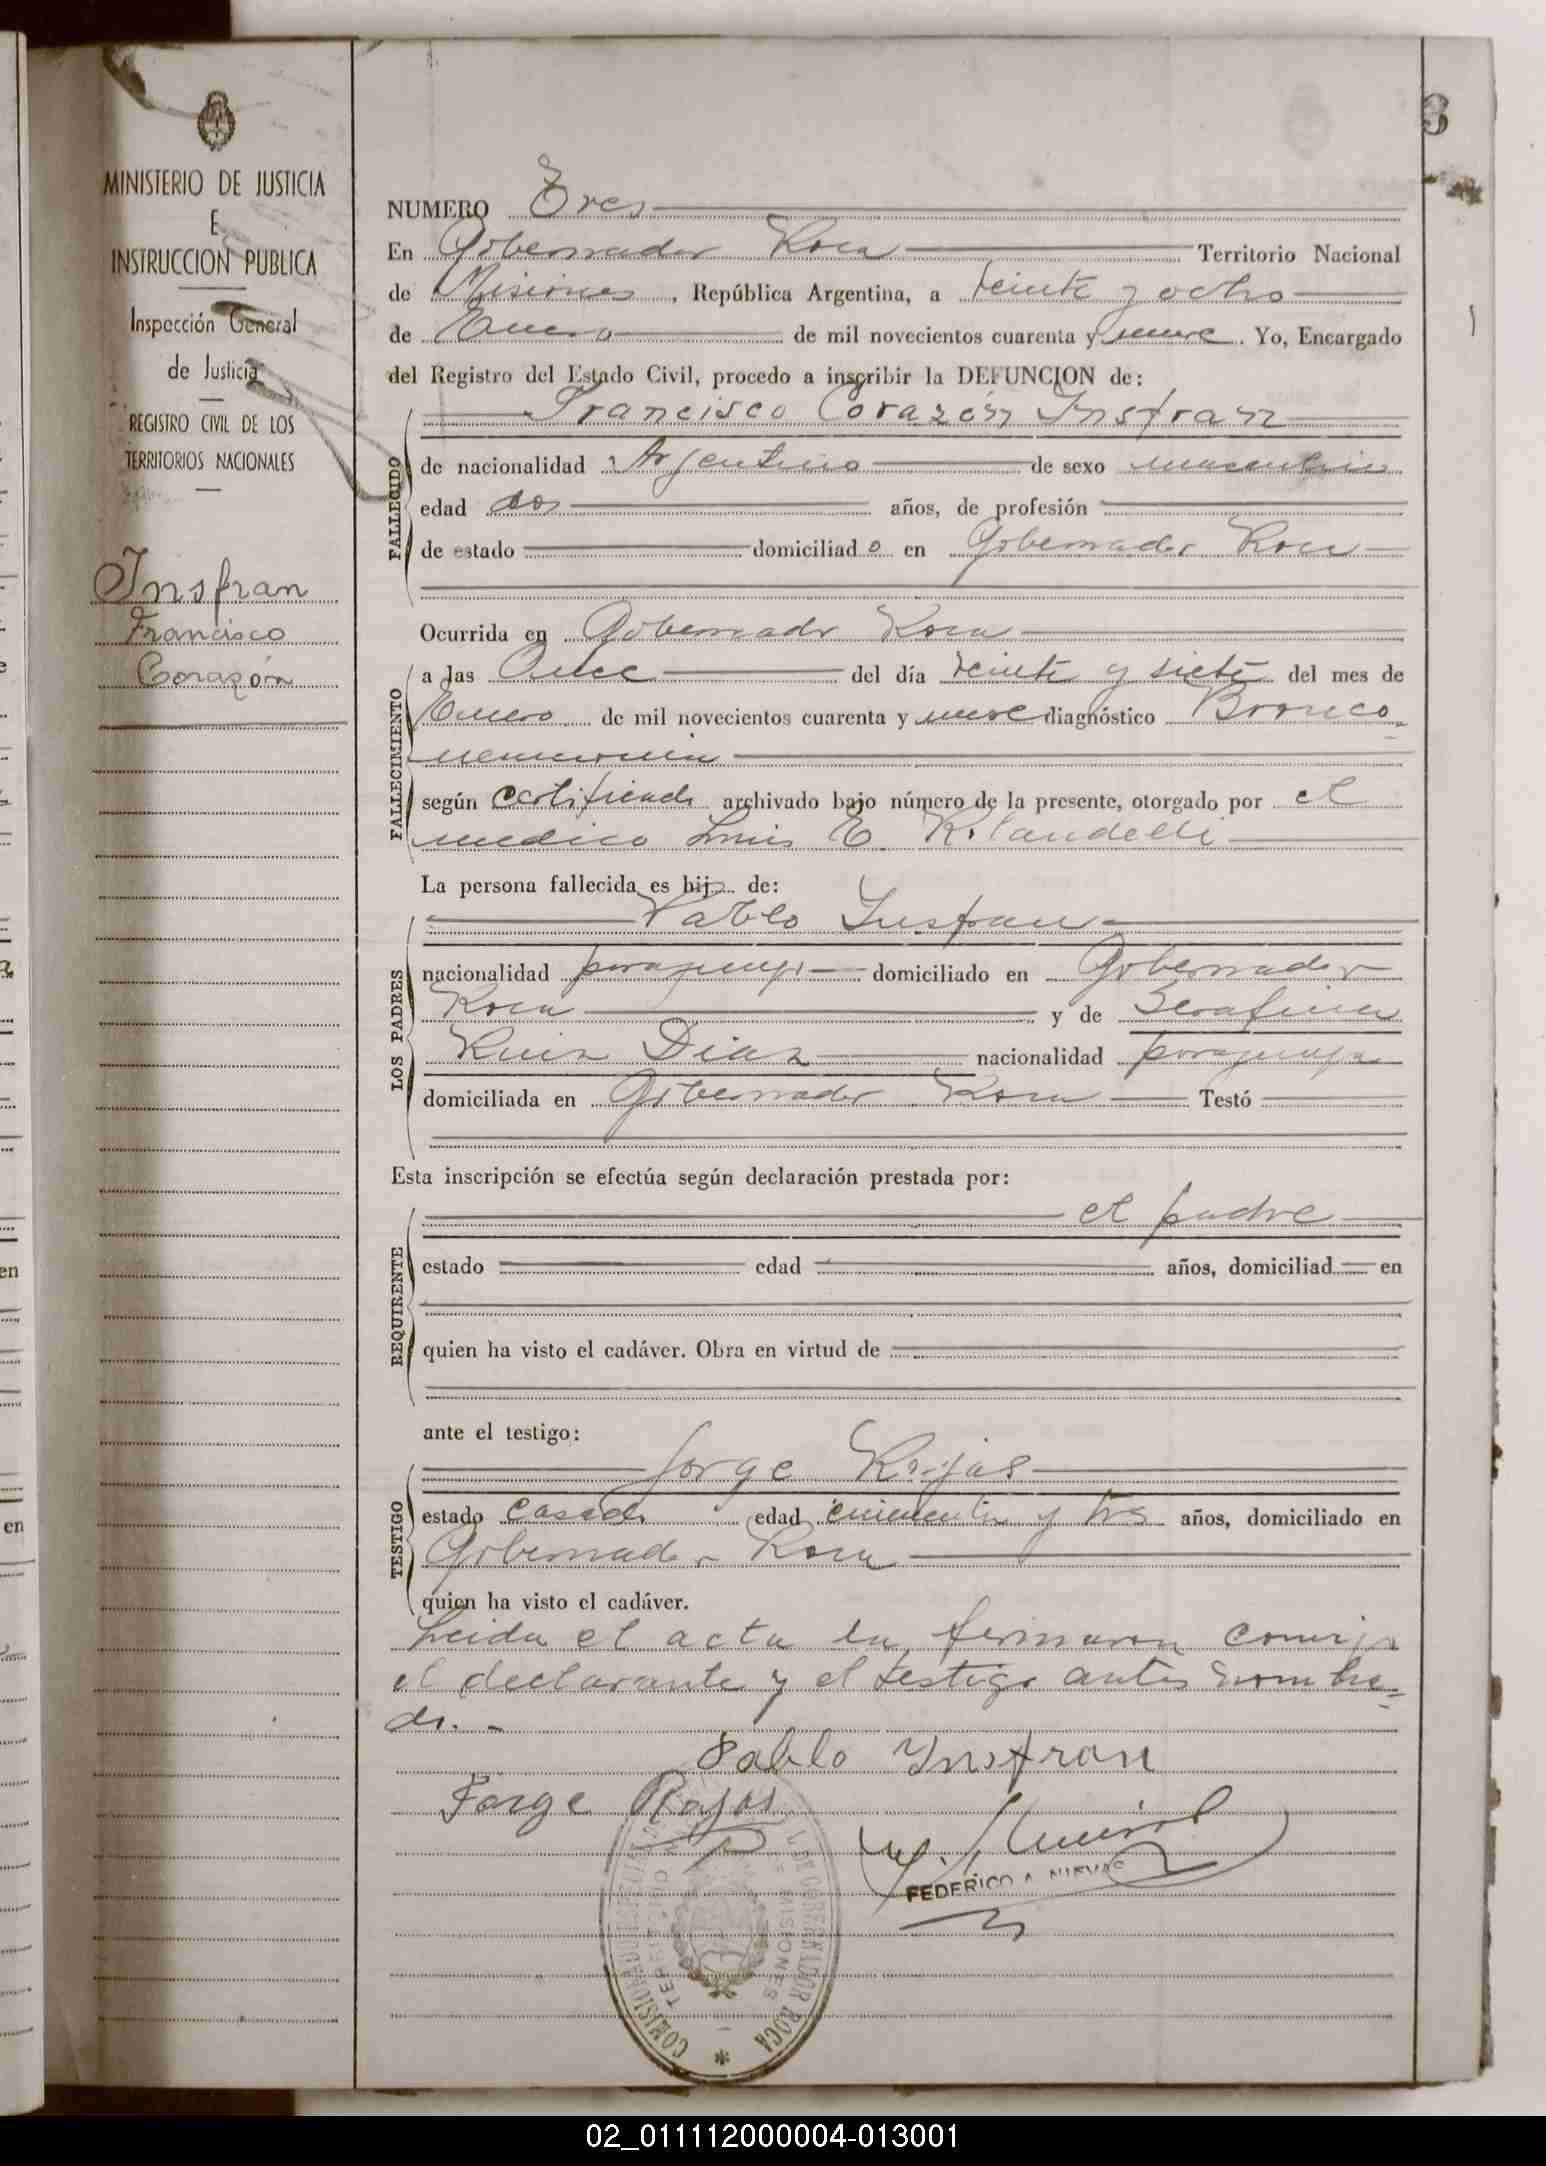 3
MINISTERIO DE JUSTICIA
E
INSTRUCCION PUBLICA
Inspección General
de Justicia
REGISTRO CIVIL DE LOS
TERRITORIOS NACIONALES
Insfran
Francisco
Corazón
NUMERO Tres
En Gobernador Roca Territorio Nacional
de Misiones, República Argentina, a veinte y ocho
de Enero de mil novecientos cuarenta y nueve. Yo, Encargado
del Registro del Estado Civil, procedo a inscribir la DEFUNCION de:
Francisco Corazón Insfran
FALLECIDO
de nacionalidad Argentino de sexo masculino
edad dos años, de profesión
de estado domiciliado en Gobernador Roca
Ocurrida en Gobernador Roca
FALLECIMIENTO
a las Once del día veinte y siete del mes de
Enero de mil novecientos cuarenta y nueve diagnóstico Bronco-
neumonia
según certificado archivado bajo número de la presente, otorgado por el
medico Luis E. Rolandelli
La persona fallecida es hijo de:
LOS PADRES
Pablo Insfran
nacionalidad paraguayo domiciliado en Gobernador
Roca y de Serafina
Ruiz Diaz nacionalidad paraguaya
domiciliada en Gobernador Roca Testó
Esta inscripción se efectúa según declaración prestada por:
REQUIRENTE
el padre
estado edad años, domiciliad en
quien ha visto el cadáver. Obra en virtud de
ante el testigo:
TESTIGO
Jorge Rojas
estado casado edad cincuenta y tres años, domiciliado en
Gobernador Roca
quien ha visto el cadáver.
Leida el acta la firmaron conmigo
el declarante y el testigo antes nombra-
do.-
Pablo Insfran
Jorge Rojas
FEDERICO A. NUEVAS
TERRITORIO MISIONES
GOBERNADOR ROCA
02_011112000004-013001